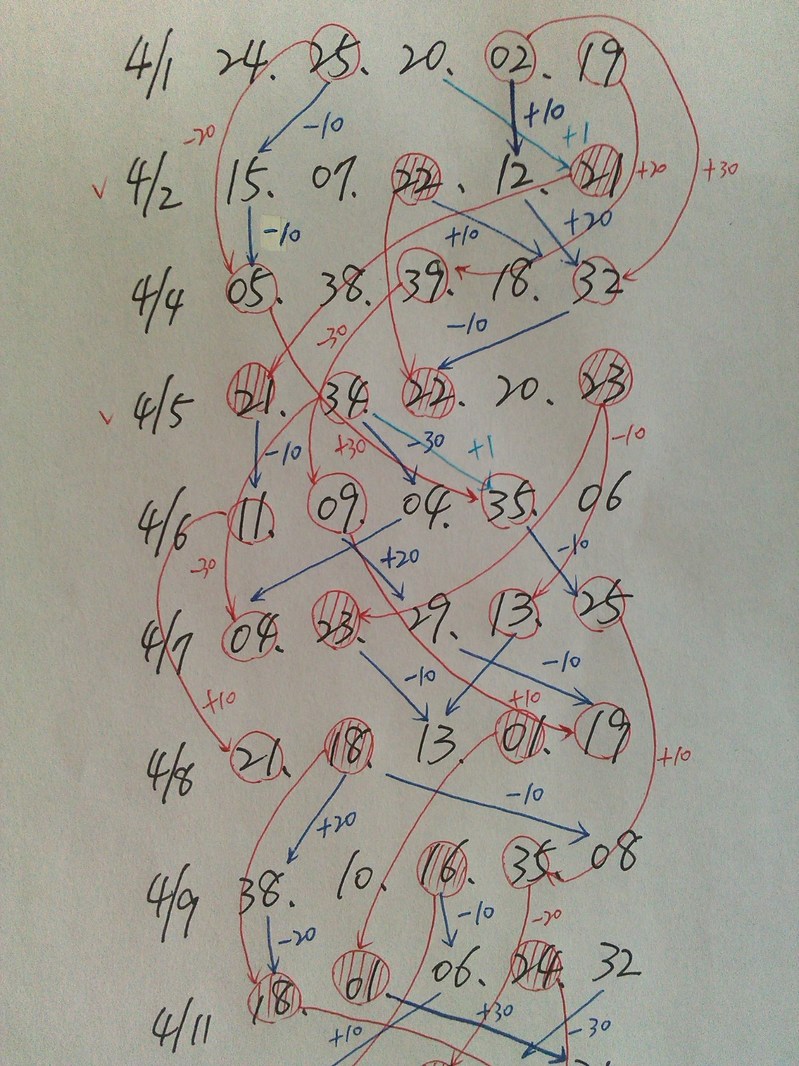 4/1 24. 25. 20. 02. 19
-20 -10 +10 +1
✓ 4/2 15. 07. 22. 12. 21 +20 +30
-10 +10 +20
4/4 05. 38. 39. 18. 32
-30 -10
✓ 4/5 21. 34. 22. 20. 23
-10 +30 -30 +1 -10
4/6 11. 09. 04. 35. 06
-30 +20 -10
4/7 04. 23. 29. 13. 25
+10 -10 +10 -10
4/8 21. 18. 13. 01. 19
+20 -10 +10
4/9 38. 10. 16. 35. 08
-20 -10 -20
4/11 18. 01 06. 24. 32
+10 +30 -30